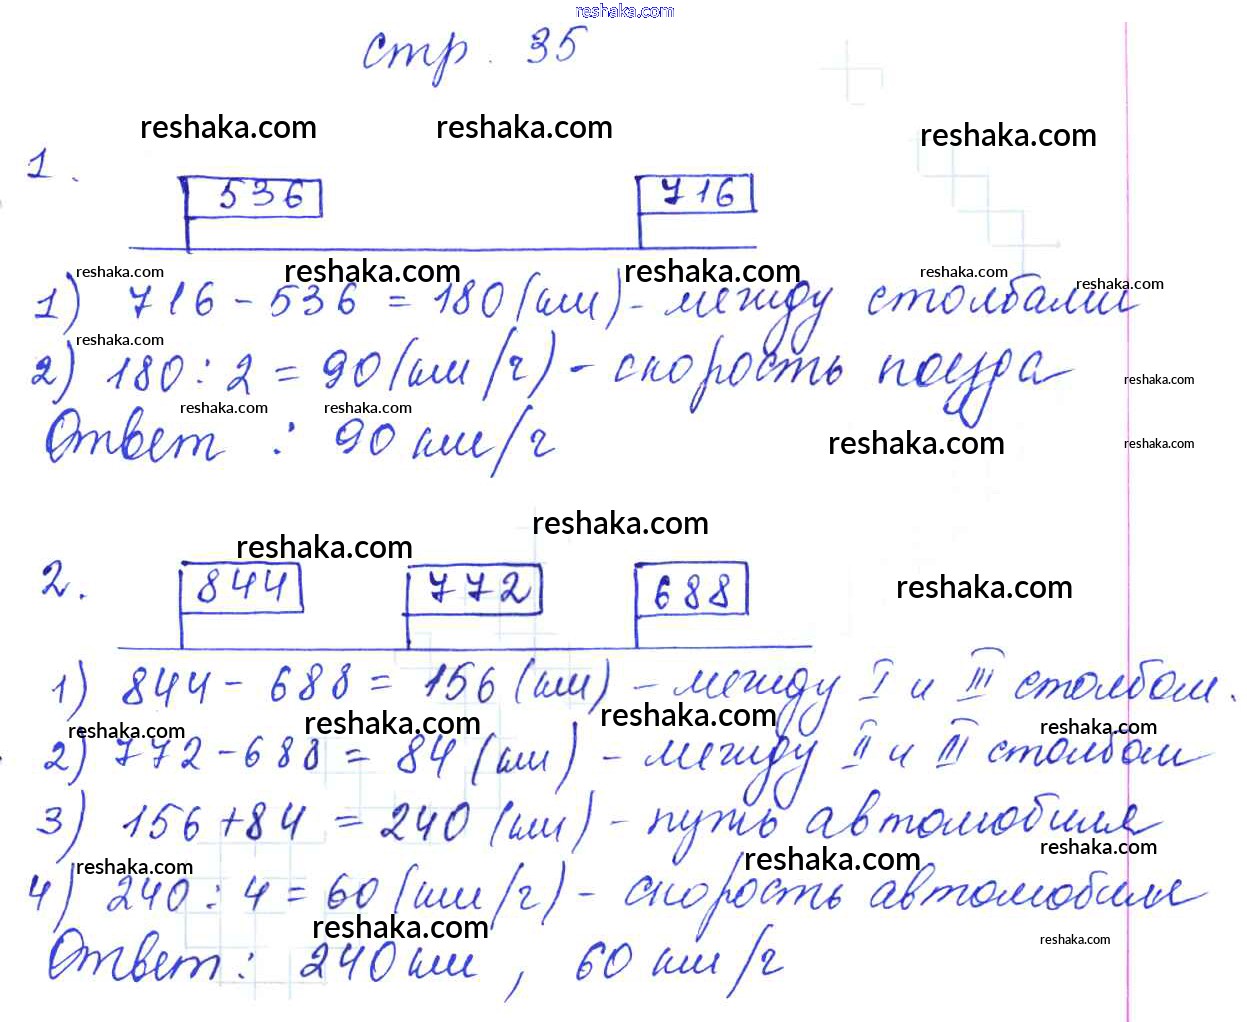 reshaka.com
стр. 35
reshaka.com reshaka.com reshaka.com
1.
536 716
reshaka.com reshaka.com reshaka.com reshaka.com reshaka.com
1) 716 - 536 = 180 (км) - между столбами
reshaka.com
2) 180 : 2 = 90 (км/ч) - скорость поезда
reshaka.com
reshaka.com reshaka.com
Ответ : 90 км/ч
reshaka.com reshaka.com
reshaka.com reshaka.com
2.
844 772 688
reshaka.com
1) 844 - 688 = 156 (км) - между I и III столбом.
reshaka.com reshaka.com reshaka.com reshaka.com
2) 772 - 688 = 84 (км) - между II и III столбом
3) 156 + 84 = 240 (км) - путь автомобиля
reshaka.com reshaka.com reshaka.com
4) 240 : 4 = 60 (км/ч) - скорость автомобиля
reshaka.com reshaka.com
Ответ: 240 км, 60 км/ч